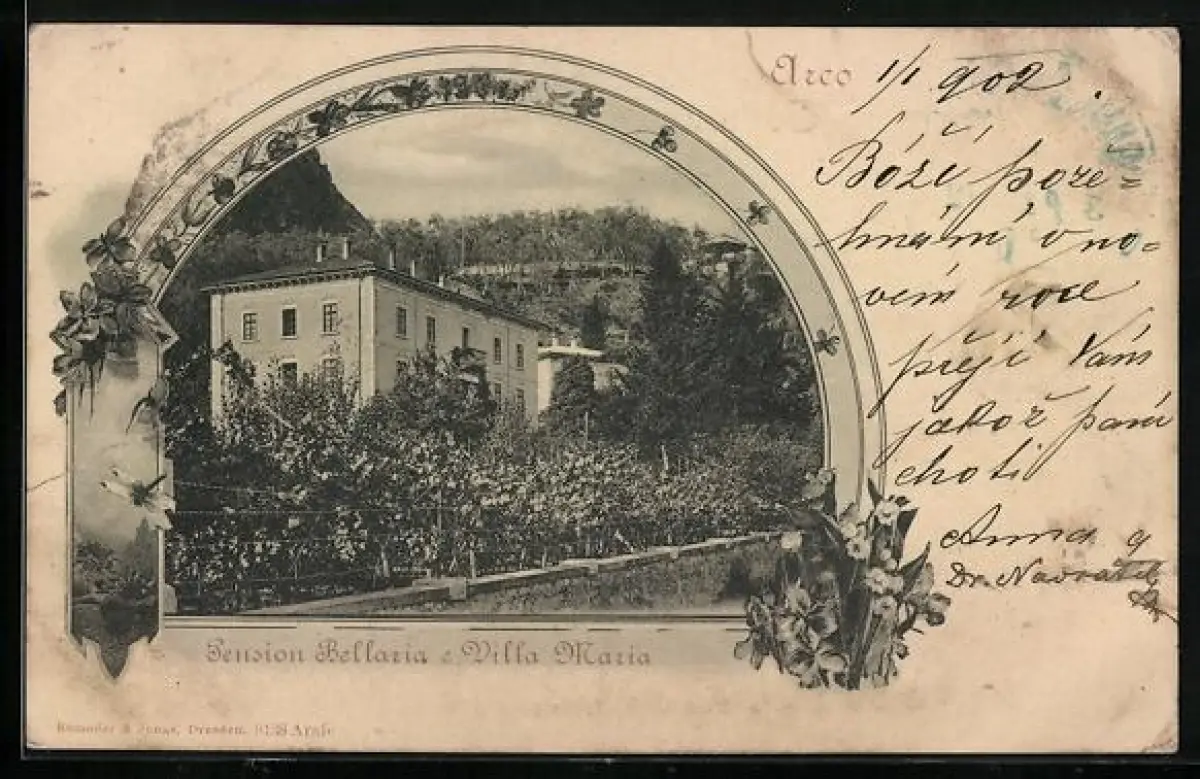 Arco
1/1 902.
Boží pože=
hnání v no=
vém roce
přejí Vám
jakož paní
choti
Anna a
Dr. Navrátil
Pension Bellaria e Villa Maria
Junge, Dresden.